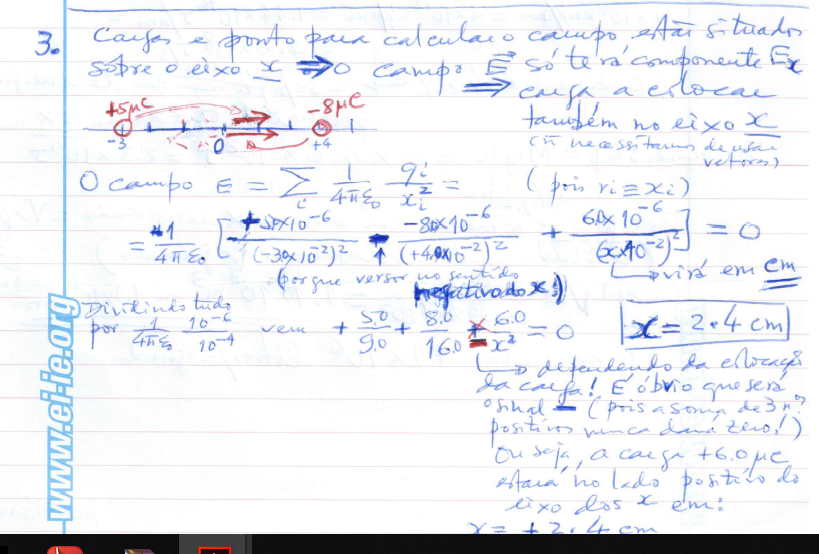 3. Cargas e ponto para calcular o campo estão situados
sobre o eixo x ⇒ O campo E⃗ só terá componente Ex
⇒ carga a colocar
também no eixo x
(ñ necessitamos de usar
vetores)
+5μC -8μC
-3 0 +4
O campo E = Σ i 1/4πε₀ qi/xi² = (pois ri ≡ xi)
= 1/4πε₀ [ +5.0x10⁻⁶/(-3.0x10⁻²)² - -8.0x10⁻⁶/(+4.0x10⁻²)² + 6.0x10⁻⁶/(x x10⁻²)² ] = 0
(porque versor no sentido
negativo do x!)
virá em cm
Dividindo tudo
por 1/4πε₀ 10⁻⁶/10⁻⁴ vem + 5.0/9.0 + 8.0/16.0 - 6.0/x² = 0
x = 2.4 cm
dependendo da colocação
da carga! É óbvio que será
o sinal - (pois a soma de 3 nº?
positivos nunca dará zero!)
Ou seja, a carga +6.0 μC
estará no lado positivo do
eixo dos x em:
x = +2.4 cm
www.ei-ie.org